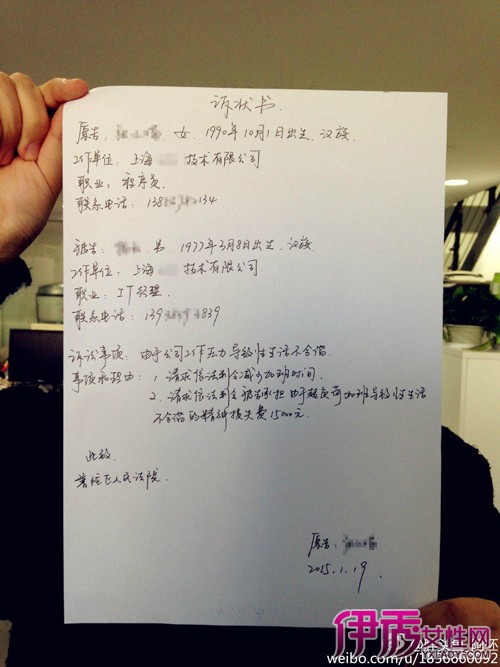 诉状书
原告: 女 1990年10月1日出生 汉族
工作单位: 上海 技术有限公司
职业: 程序员
联系电话: 138 134
被告: 男 1977年3月8日出生 汉族
工作单位: 上海 技术有限公司
职业: IT经理
联系电话: 139 839
诉讼事项: 由于公司工作压力导致性生活不合谐
事项和理由: 1. 请求依法判令减少加班时间.
2. 请求依法判令被告承担由于超负荷加班导致性生活
不合谐的精神损失费15000元
此致
普陀区人民法院
原告:
2015.1.19
伊秀女性网
weibo.com/u/